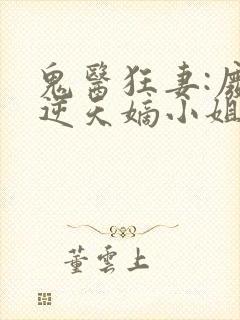 鬼醫狂妻:廢
逆天嫡小姐
董雲上